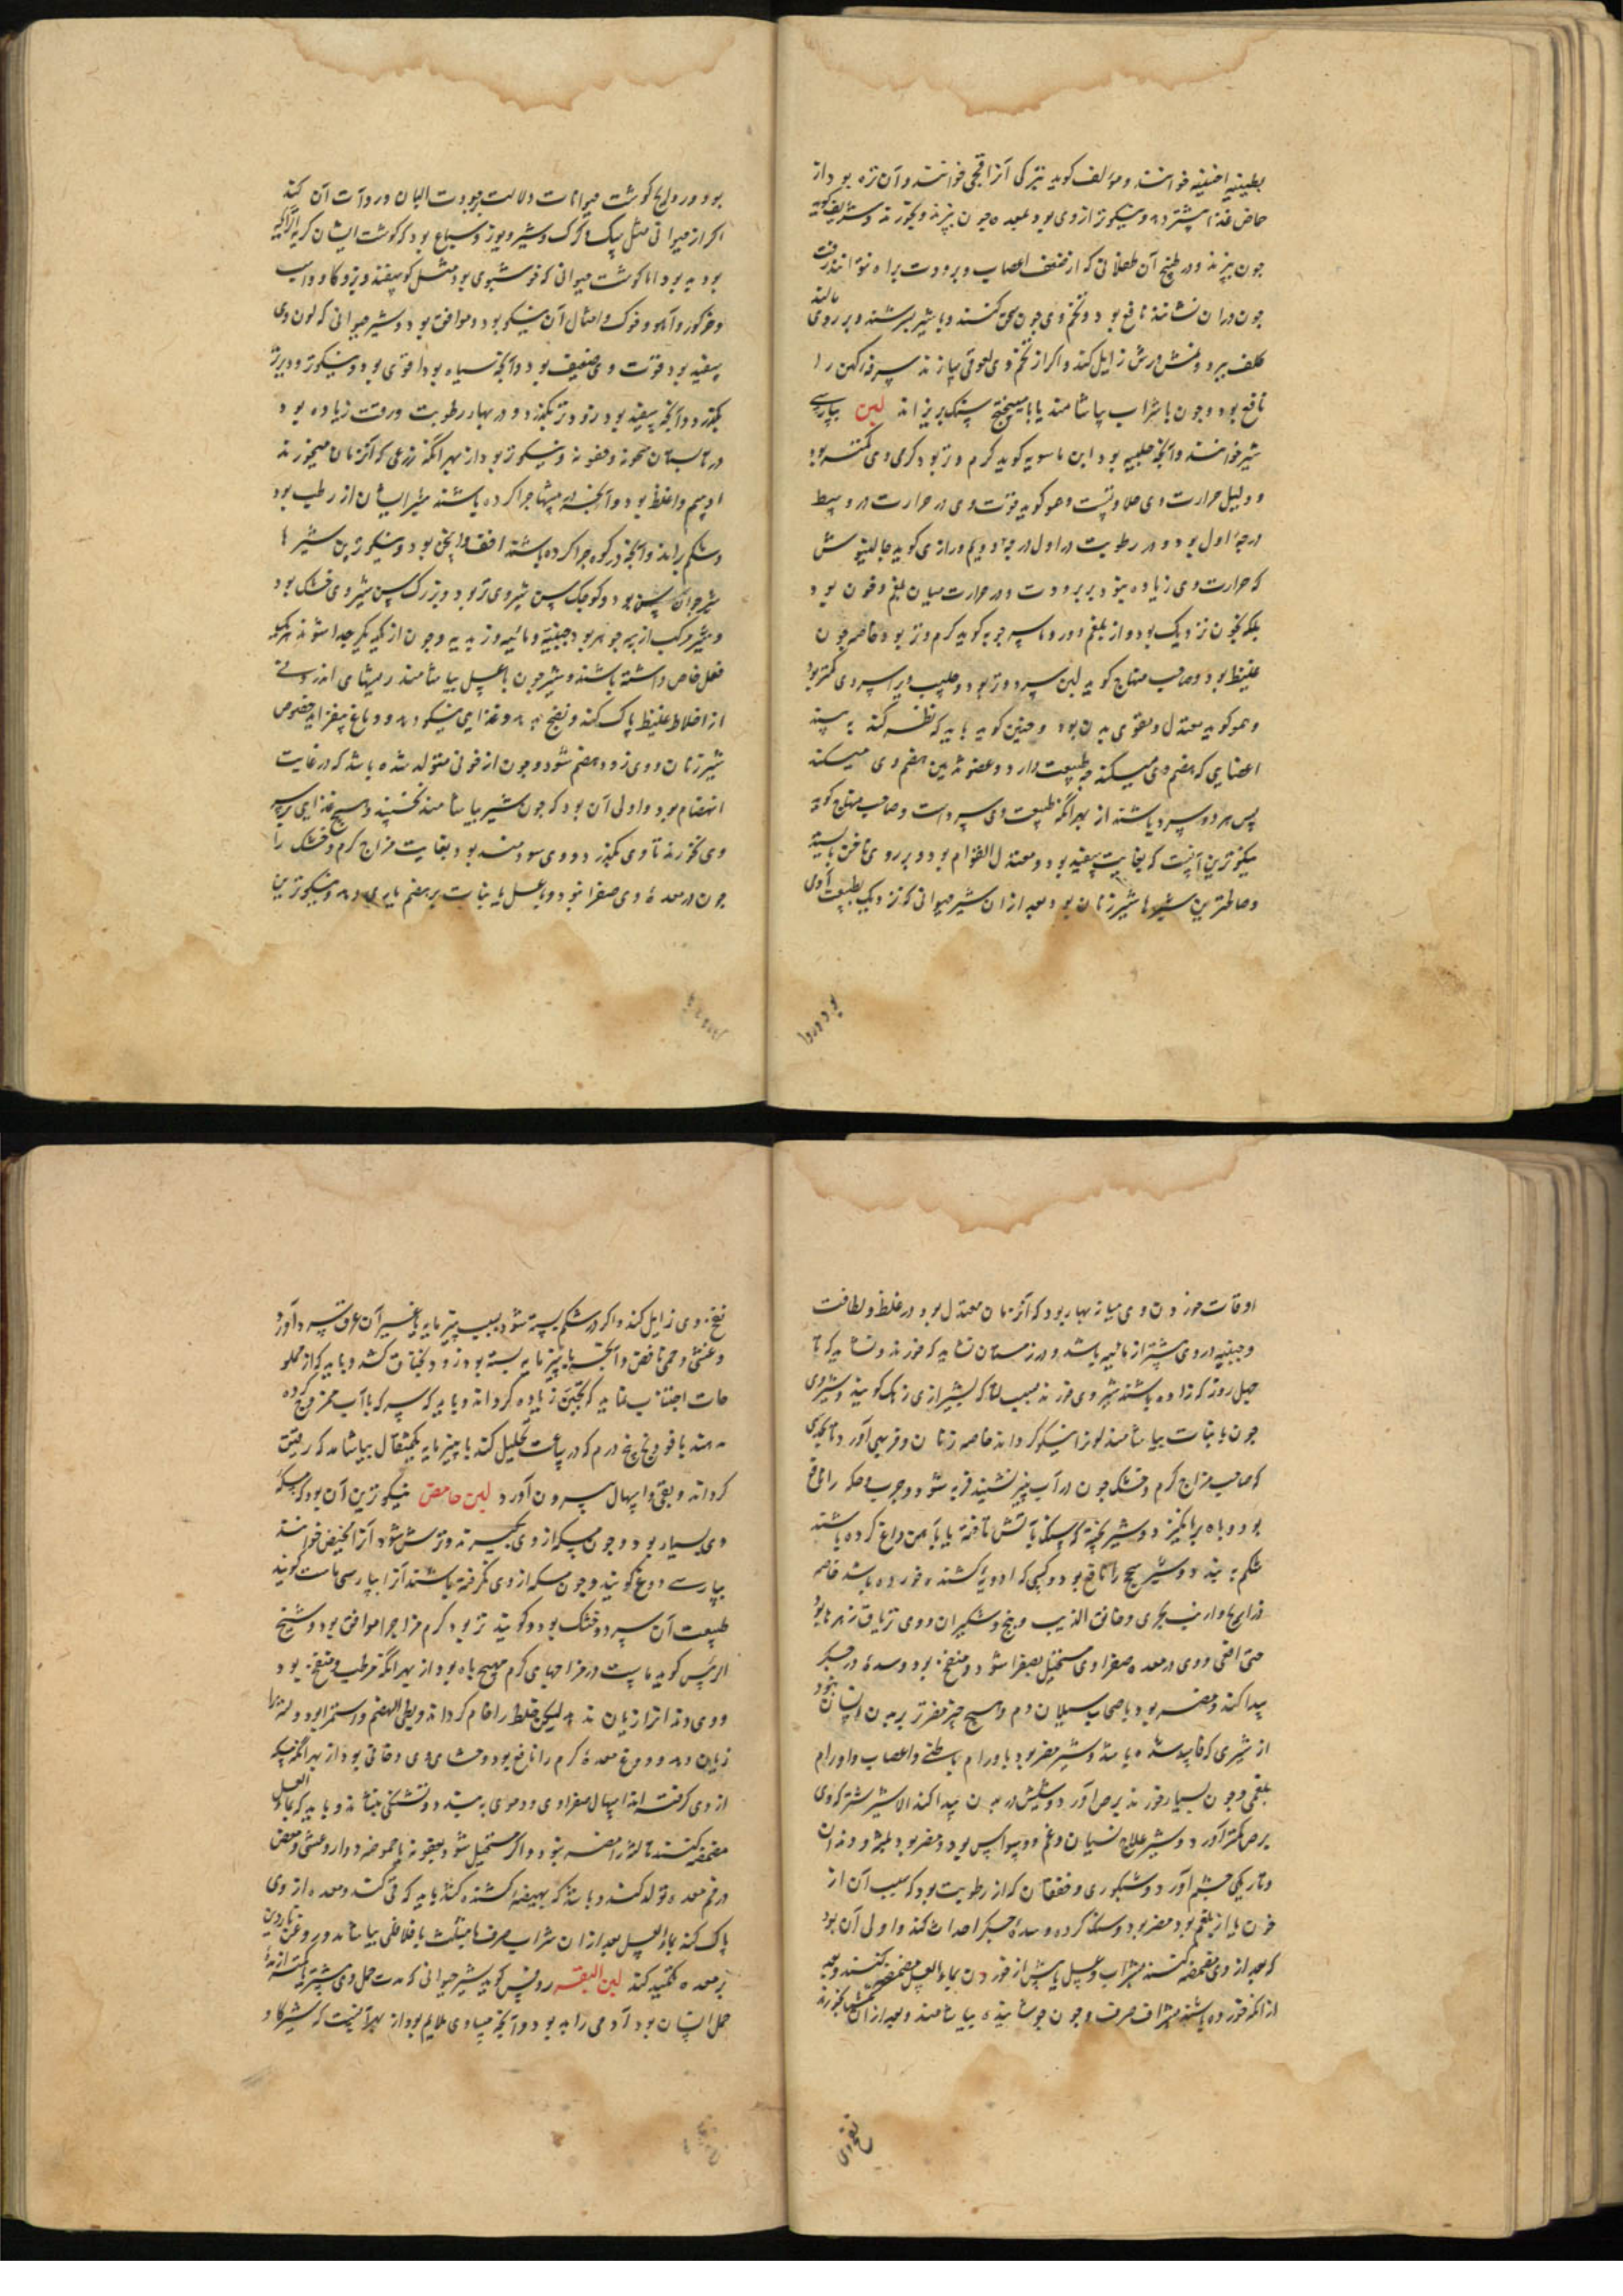 خوانند و مؤلف گوید بترکی آنرا قجی خوانند و آن تره بود از
جون بپزند و در طبیخ آن طفلانی که از ضعف اعصاب و برودت براه نتوانند رفت
جون در آن نشانند نافع بود و تخم وی جون سحق کنند و با شیر بسرشند و بر روی مالند
کلف ببرد و نمش و برش زایل کند و اگر از تخم وی لعوقی سازند سرفه کهن را
نافع بود و جون با شراب بیاشامند یا با میبختج سنک بریزاند لبن بپارسی
شیر خوانند و آنچه حلیب بود ابن ماسویه گوید گرم و تر بود گرمی وی کمتر بود
و دلیل حرارت وی حلاوتست و هم گوید قوت وی در حرارت در وسط
درجهٔ اول بود و در رطوبت در اول درجهٔ دویم و رازی گوید جالینوس
که حرارت وی زیاده نبود بر برودت و در حرارت میان بلغم و خون بود
بلکه بخون نزدیک بود و از بلغم دور و ماسرجویه گوید گرم و تر بود خاصه جون
غلیظ بود و صاحب منهاج گوید لبن سرد و تر بود و حلیب ویرا سردی کمتر بود
و هم گوید معتدل و مقوی بدن بود و جنین گوید باید که نظر کند به بیند
اعضایی که هضم وی میکند چه طبیعت دارد و عضو ثدیین هضم وی میکند
پس هر دو سرد باشند از بهر آنکه طبیعت وی سرد است و صاحب منهاج گوید
نیکوترین آنست که بغایت سفید بود و معتدل القوام بود و بر روی ناخن بایستد
و صالحترین شیرها شیر زنان بود بعد از آن شیر حیوانی که نزدیک بطبیعت آدمی
بود و روا
بود و روایح گوشت حیوانات دلالت بجودت البان و ردآءت آن کند
اگر از حیوانی مثل سک و گرگ و شیر و یوز و سباع بود که گوشت ایشان کریه الرایحه
بود بد بود اما گوشت حیوانی که خوشبوی بود مثل گوسفند و بز و گاو و اسب
و خرگور و آهو و امثال آن نیکو بود و موافق بود و شیر حیوانی که لون وی
سفید بود قوت وی ضعیف بود و آنچه سیاه بود اقوی بود و نیکوتر و دیرتر
بگذرد و آنچه سفید بود زودتر بگذرد و در بهار رطوبت و رقت زیاده بود
اوسم و اغلظ بود و آنچه در بیشها جرا کرده باشند شیر ایشان ارطب بود
و شکم براند و آنچه در کوه جرا کرده باشند اخف و اسخن بود و نیکوترین شیرها
شیر جوان سن بود و کوجک سن شیر وی تر بود و بزرک سن شیر وی خشک بود
و شیر مرکب از سه جوهر بود جبنیه و مائیه و زبدیه و جون از یکدیگر جدا شوند هر یکی
فعل خاص داشته باشند و شیر جون با عسل بیاشامند ریشهای اندرونی
از اخلاط غلیظ پاک کند و نضج دهد و غذایی نیکو دهد و دماغ بیفزاید خصوص
شیر زنان و وی زود هضم شود و جون از خونی متولد شده باشد که در غایت
انهضام بود و اولی آن بود که جون شیر بیاشامند نخسپند و هیچ غذایی بر سر
وی نخورند تا وی بگذرد و وی سودمند بود بغایت مزاج گرم و خشک را
جون در معدهٔ وی صفرا نبود و با عسل یا نبات بر هضم یاری دهد و نیکوترین
اوقات خوردن وی میانه بهار بود که آن زمان معتدل بود در غلظ و لطافت
و جبنیه در وی بیشتر از مائیه باشد و در زمستان نشاید که خورند و نشاید که تا
جهل روز که زاده باشند شیر وی خورند بسبب لبا که بشیرازی زهک گویند و شیر وی
جون با نبات بیاشامند لون را نیکو گرداند خاصه زنان و فربهی آورد
که صاحب مزاج گرم و خشک جون در آب پنیر نشیند فربه شود و جرب و حکه را نافع
بود و باه برانگیزد و شیر پخته که بسنک بآتش تافته یا بآهن داغ کرده باشند
شکم به بندد و شیر سحج را نافع بود و کسی که ادویهٔ کشنده خورده باشد خاصه
ذراریح و ارنب بحری و خانق الذیب و بنج و شوکران و وی تریاق زهرها بود
حتی افعی و وی در معده صفراوی مستحیل بصفرا شود و منفخ بود و سده در جگر
پیدا کند و مضر بود باصحاب سیلان دم و هیچ چیز مضرتر ببدن انسان نبود
از شیری که فاسد شده باشد و شیر مضر بود باورام باطنی و اعصاب و اورام
بلغمی و جون بسیار خورند برص آورد و شپش در بدن پیدا کند الا شیر شتر که وی
برص کمتر آورد و شیر علاج نسیان و غم و وسواس بود و مضر بود بلثه و دندان
و تاریکی جشم آورد و شبکوری و خفقان که از رطوبت بود که سبب آن از
خون یا از بلغم بود مضر بود و سنک گرده و سدهٔ جگر احداث کند و اولی آن بود
که بعد از وی مضمضه کنند بشراب و عسل یا پیش از خوردن بماء العسل مضمضه کنند و بعد
از آنکه خورده باشند بشراب صرف و جون جوشانیده بیاشامند و بعد از آن
نفخ وی
نفخ وی زایل کند و اگر در شکم بسته شود بسبب پنیرمایه یا غیر آن عرق سرد آورد
و غشی و حمی نافض و آنچه با پنیرمایه بسته بود زود بخناق کشد و باید که از مملو
حات اجتناب نماید که تجبن زیاده گرداند و باید که سرکه با آب ممزوج کرده
دهند یا فودنج پنج درم که در ساعت تحلیل کند یا پنیرمایه یکمثقال بیاشامد که رقیق
گرداند و بقی و اسهال بیرون آورد لبن حامض نیکوترین آن بود که مسکهٔ
وی بسیار بود و جون مسکه از وی بگیرند و ترش شود آنرا مخیض خوانند
بپارسی دوغ گویند و جون مسکه از وی نگرفته باشند آنرا بپارسی ماست گویند
طبیعت آن سرد و خشک بود و گویند تر بود گرم مزاج را موافق بود و شیخ
الرئیس گوید ماست در مزاجهای گرم مهیج باه بود از بهر آنکه مرطب و منفخ بود
و وی دندانرا زیان ندهد لیکن خلط را خام گرداند و بطی الهضم و استمرا بود و لثه را
زیان دهد و دوغ معدهٔ گرم را نافع بود و جشای وی دخانی بود از بهر آنکه مسکه
از وی گرفته اند اسهال صفراوی و دموی به بندد و تشنکی بنشاند و باید که بماء العسل
مضمضه کنند تا لثه را مضر نبود و اگر مستحیل شود بعفونه یا حموضه دوار و غشی و مغص
در فم معده تولد کند و باشد که بهیضهٔ کشنده کشد باید که قی کند و معده از وی
پاک کند بماء العسل بعد از آن شراب صرف یا مثلث یا فلافلی بیاشامد و روغن ناردین
بر معده تکمید کند لبن البقر روفس گوید شیر حیوانی که مدت حمل وی بیشتر یا کمتر از مدة
حمل انسان بود آدمی را بد بود و آنچه مساوی ملایم بود از بهر آنست که شیر گاو